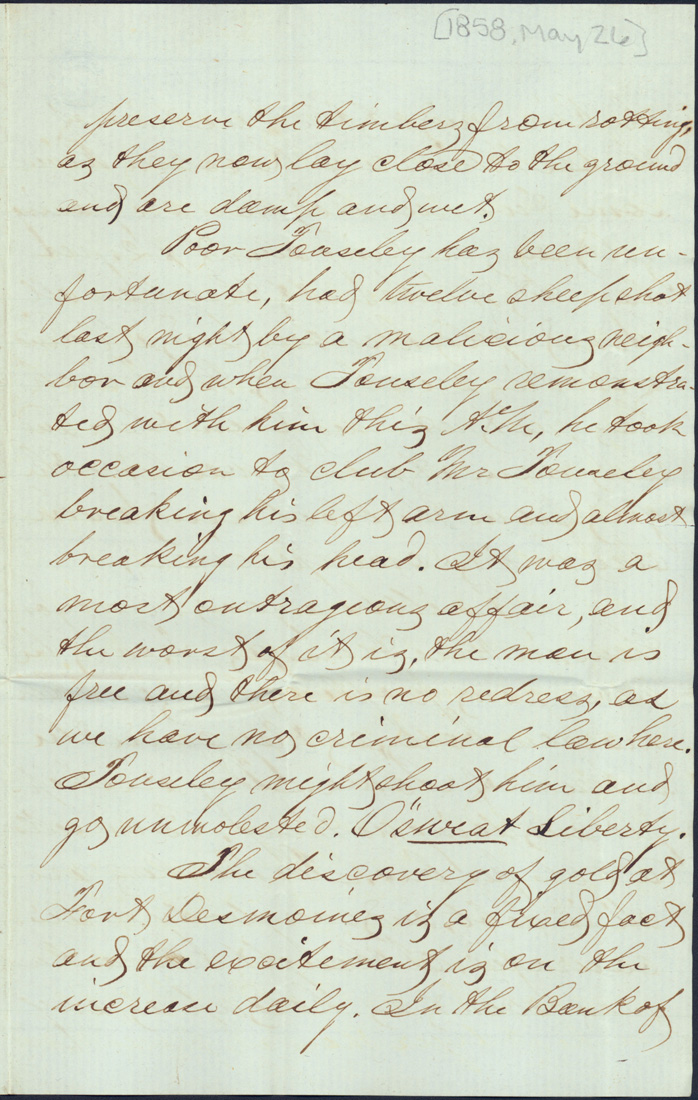 [1858, May 26]
preserve the timbers from rotting,
as they now lay close to the ground
and are damp and wet.
Poor Touseley has been un-
fortunate, had twelve sheep shot
last night by a malicious neigh-
bor and when Touseley remonstra-
ted with him this A.M., he took
occasion to club Mr Touseley
breaking his left arm and almost
breaking his head. It was a
most outrageous affair, and
the worst of it is, the man is
free and there is no redress, as
we have no criminal law here.
Touseley might shoot him and
go unmolested. O'sweat Liberty.
The discovery of gold at
Fort Desmoines is a fixed fact
and the excitement is on the
increase daily. In the Bank of